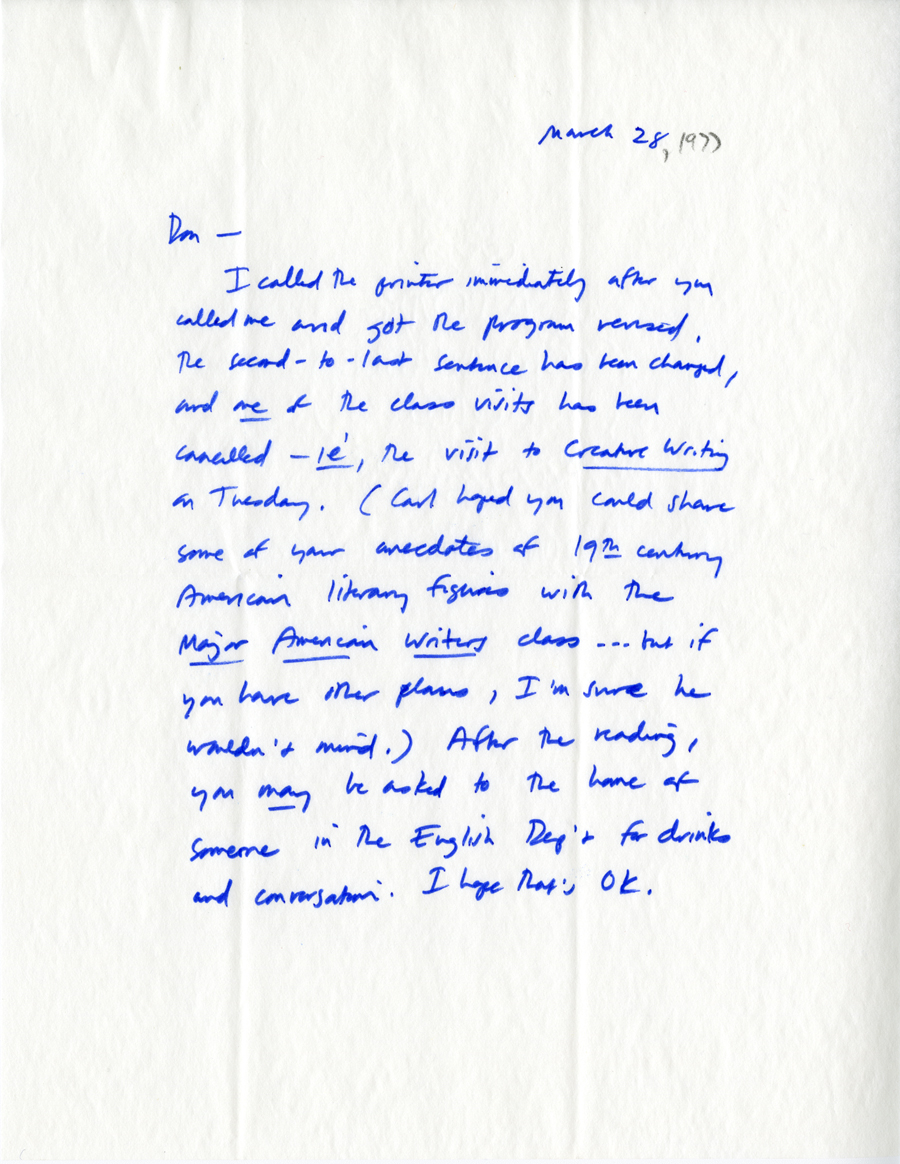 March 28, 1977
Don —
I called the printer immediately after you
called me and got the program revised.
The second-to-last sentence has been changed,
and one of the class visits has been
cancelled – ie, the visit to Creative Writing
on Tuesday. (Carl hoped you could share
some of your anecdotes of 19th century
American literary figures with the
Major American Writers class ... but if
you have other plans, I'm sure he
wouldn't mind.) After the reading,
you may be asked to the home of
someone in the English Dep't for drinks
and conversation. I hope that's OK.